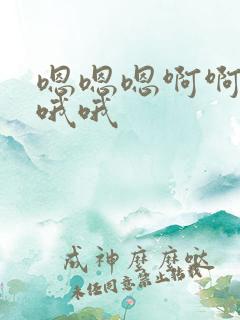 嗯嗯嗯啊啊
哦哦
成神麽麽哒
未经同意禁止转载